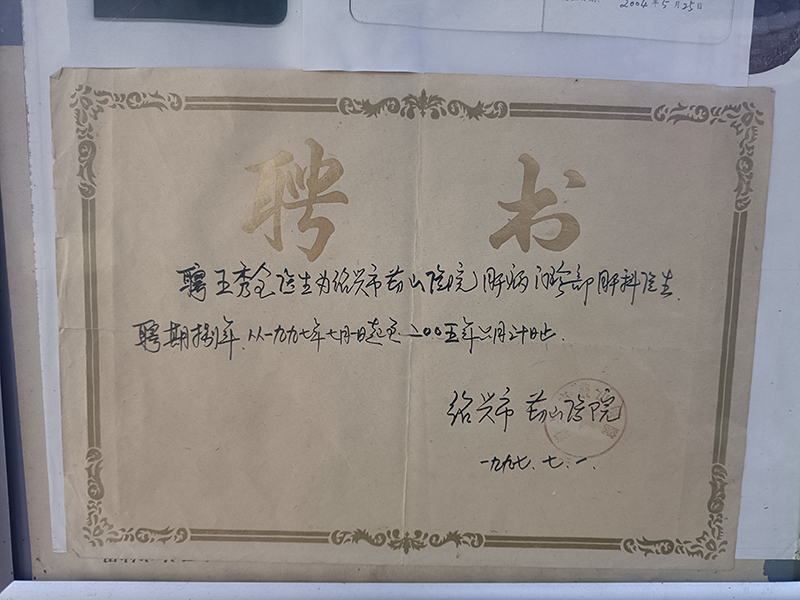 2004年5月25日
聘书
聘王秀全医生为绍兴市蕺山医院肝病门诊部肝科医生
聘期捌年.从一九九七年七月一日起至二00五年六月卅日止.
绍兴市蕺山医院
一九九七.七.一.